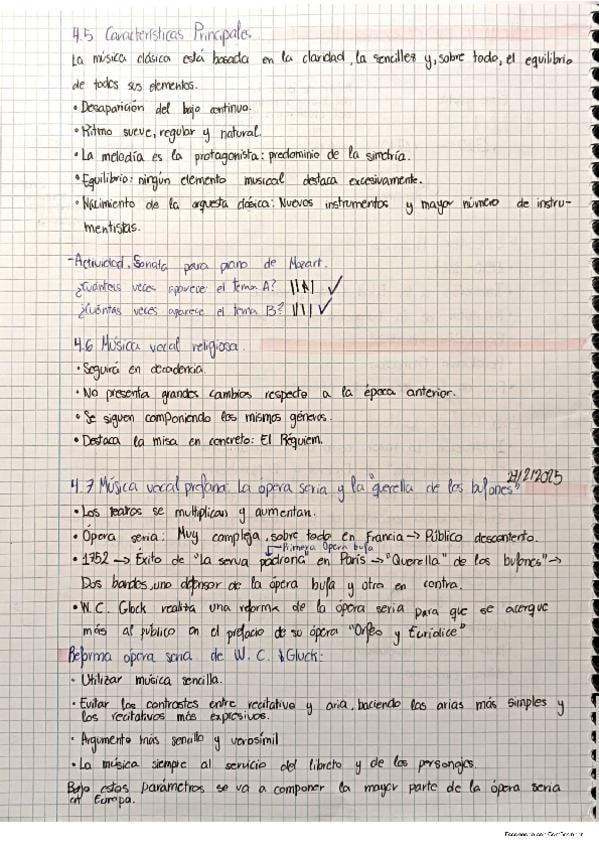 4.5 Características Principales
La música clásica está basada en la claridad, la sencillez y, sobre todo, el equilibrio
de todos sus elementos.
• Desaparición del bajo continuo.
• Ritmo sueve, regular y natural.
• La melodía es la protagonista: predominio de la simetría.
• Equilibrio: ningún elemento musical destaca excesivamente.
• Nacimiento de la orquesta clásica: Nuevos instrumentos y mayor número de instru-
mentistas.
- Actividad. Sonata para piano de Mozart.
¿Cuántas veces aparece el tema A? ✓
¿Cuántas veces aparece el tema B? ✓
4.6 Música vocal religiosa.
• Seguirá en decadencia.
• No presenta grandes cambios respecto a la época anterior.
• Se siguen componiendo los mismos géneros.
• Destaca la misa en concreto: El Réquiem.
/2/2025
4.7 Música vocal profana: La ópera seria y la "querella de los bufones"
• Los teatros se multiplican y aumentan.
• Ópera seria: Muy compleja, sobre todo en Francia → Público descontento.
Primera Ópera bufa
• 1752 → Éxito de "La serva padrona" en París → "Querella" de los bufones" →
Dos bandos, uno defensor de la ópera bufa y otro en contra.
• W.C. Glock realiza una reforma de la ópera seria para que se acerque
más al público en el prefacio de su ópera "Orfeo y Eurídice"
Reforma ópera seria de W. C. Gluck:
• Utilizar música sencilla.
• Evitar los contrastes entre recitativo y aria, haciendo las arias más simples y
los recitativos más expresivos.
• Argumento más sencillo y verosímil
• La música siempre al servicio del libreto y de los personajes.
Bajo estos parámetros se va a componer la mayor parte de la ópera seria
en Europa.